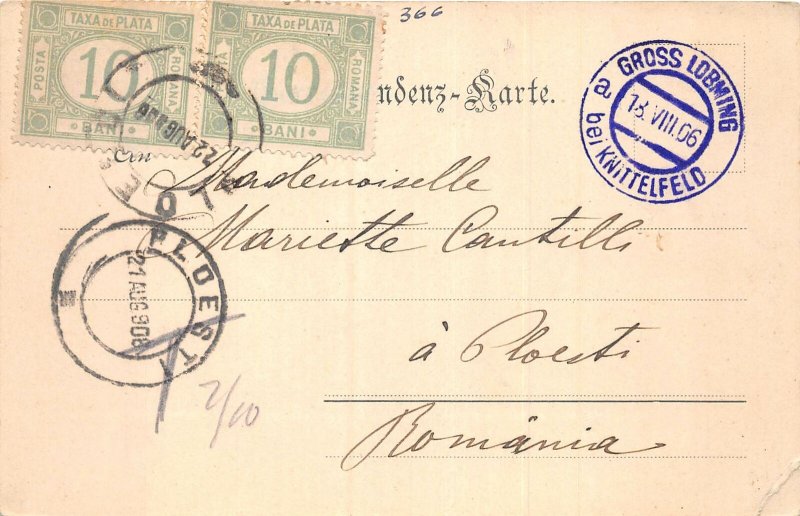 366
TAXA DE PLATA
POSTA
10
ROMANA
BANI
TAXA DE PLATA
10
ROMANA
BANI
ndenz-Karte.
GROSS LOBMING
a
18.VIII.06
bei KNITTELFELD
22 AUG 906
An
Mademoiselle
Mariette Cantilli
PLOESTI
21 AUG 906
T
2/10
à Ploesti
România